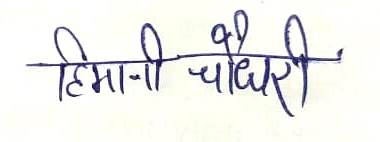 हिमानी चौधरी